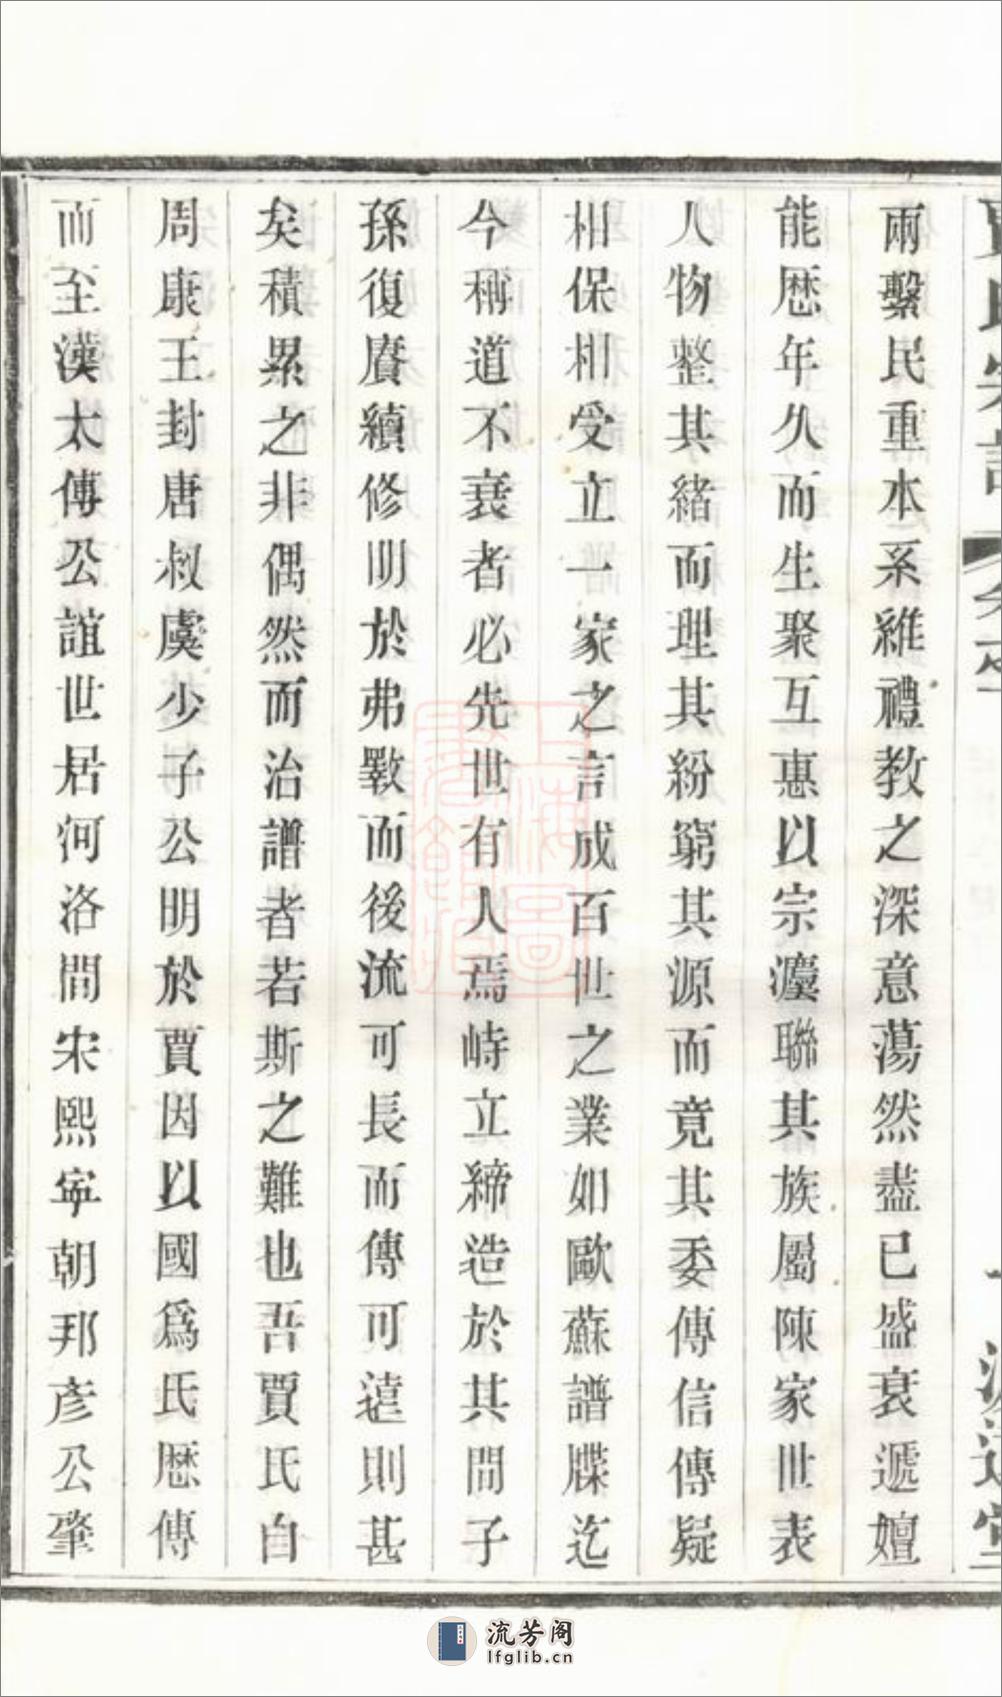 兩繫民重本系維禮教之深意蕩然盡已盛衰遞嬗
能歷年久而生聚互惠以宗灋聯其族屬陳家世表
人物整其緒而理其紛窮其源而竟其委傳信傳疑
相保相受立一家之言成百世之業如歐蘇譜牒迄
今稱道不衰者必先世有人焉峙立締造於其間子
孫復賡續修明於弗斁而後流可長而傳可遠則甚
矣積累之非偶然而治譜者若斯之難也吾賈氏自
周康王封唐叔虞少子公明於賈因以國爲氏歷傳
而至漢太傅公誼世居河洛間宋熙寧朝邦彥公肇
上海圖
流芳阁
lfglib.cn